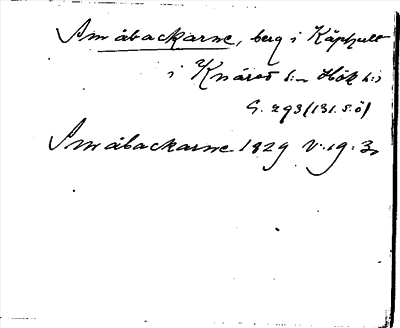 Småbackarne, berg i Käphult
i Knäred s:n Hök h:d
G. 293 (131. S.Ö)
Småbackarne 1829 V. 19: 30